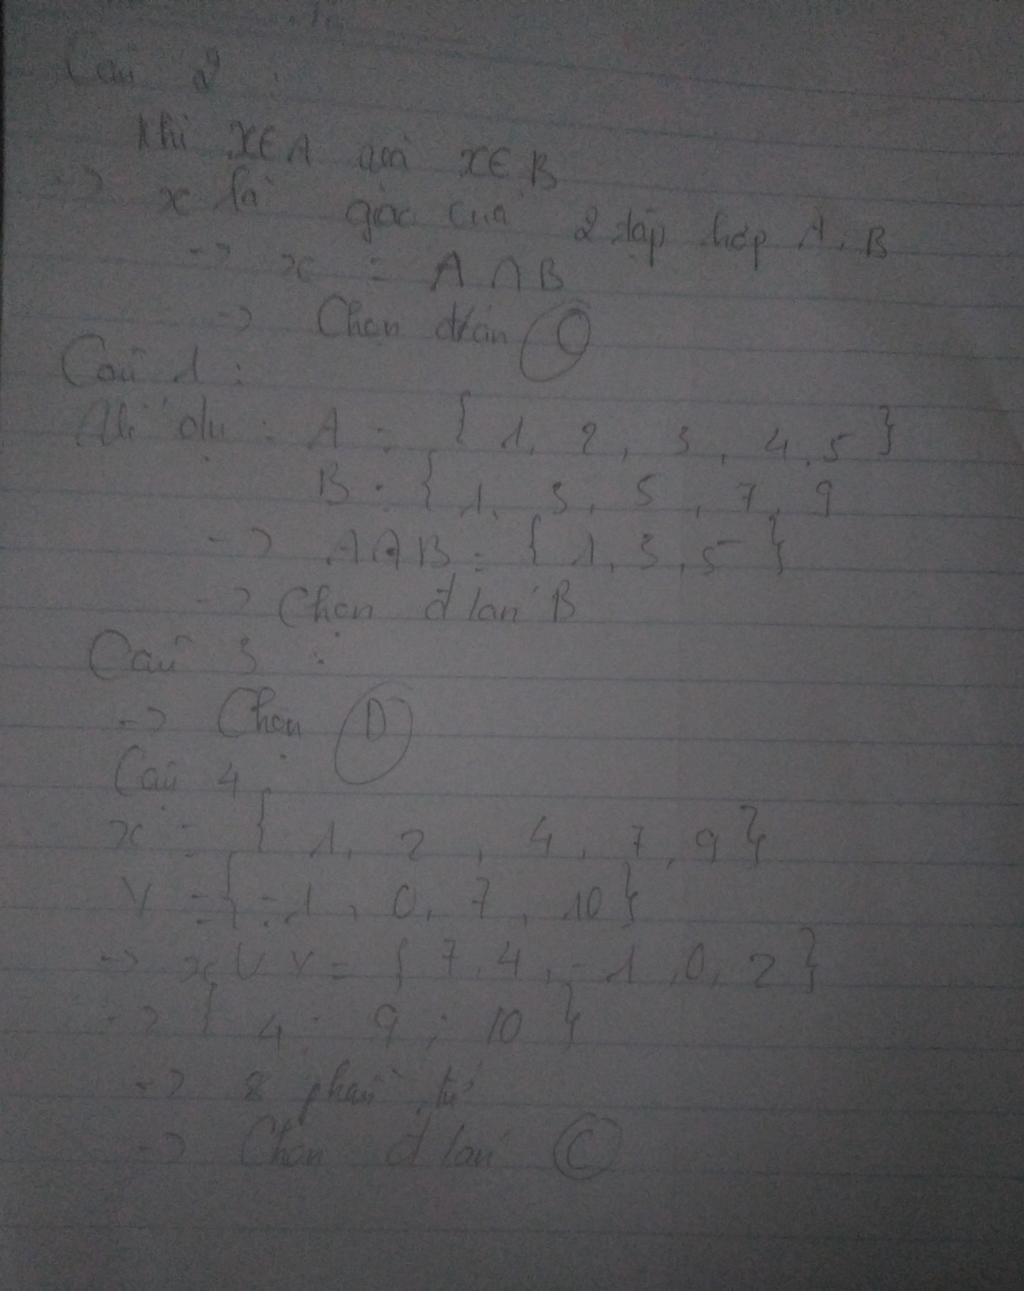 Câu 2 :
Khi x∈A x∈B
-> x là của 2 tập hợp A, B
-> x = A∩B
-> Chọn đ/án C
Câu 1 :
Ví dụ : A = { 1, 2, 3, 4, 5 }
B = { 1, 3, 5, 7, 9
-> A∩B = { 1, 3, 5 }
-> Chọn đ/án B
Câu 3 :
-> Chọn D
Câu 4 :
x = { 1, 2, 4, 7, 9 }
Y = { -1, 0, 7, 10 }
-> x∪Y = { 7, 4, -1, 0, 2 }
-> { 4 ; 9 ; 10 }
-> 8 phần tử
-> Chọn đ/án C